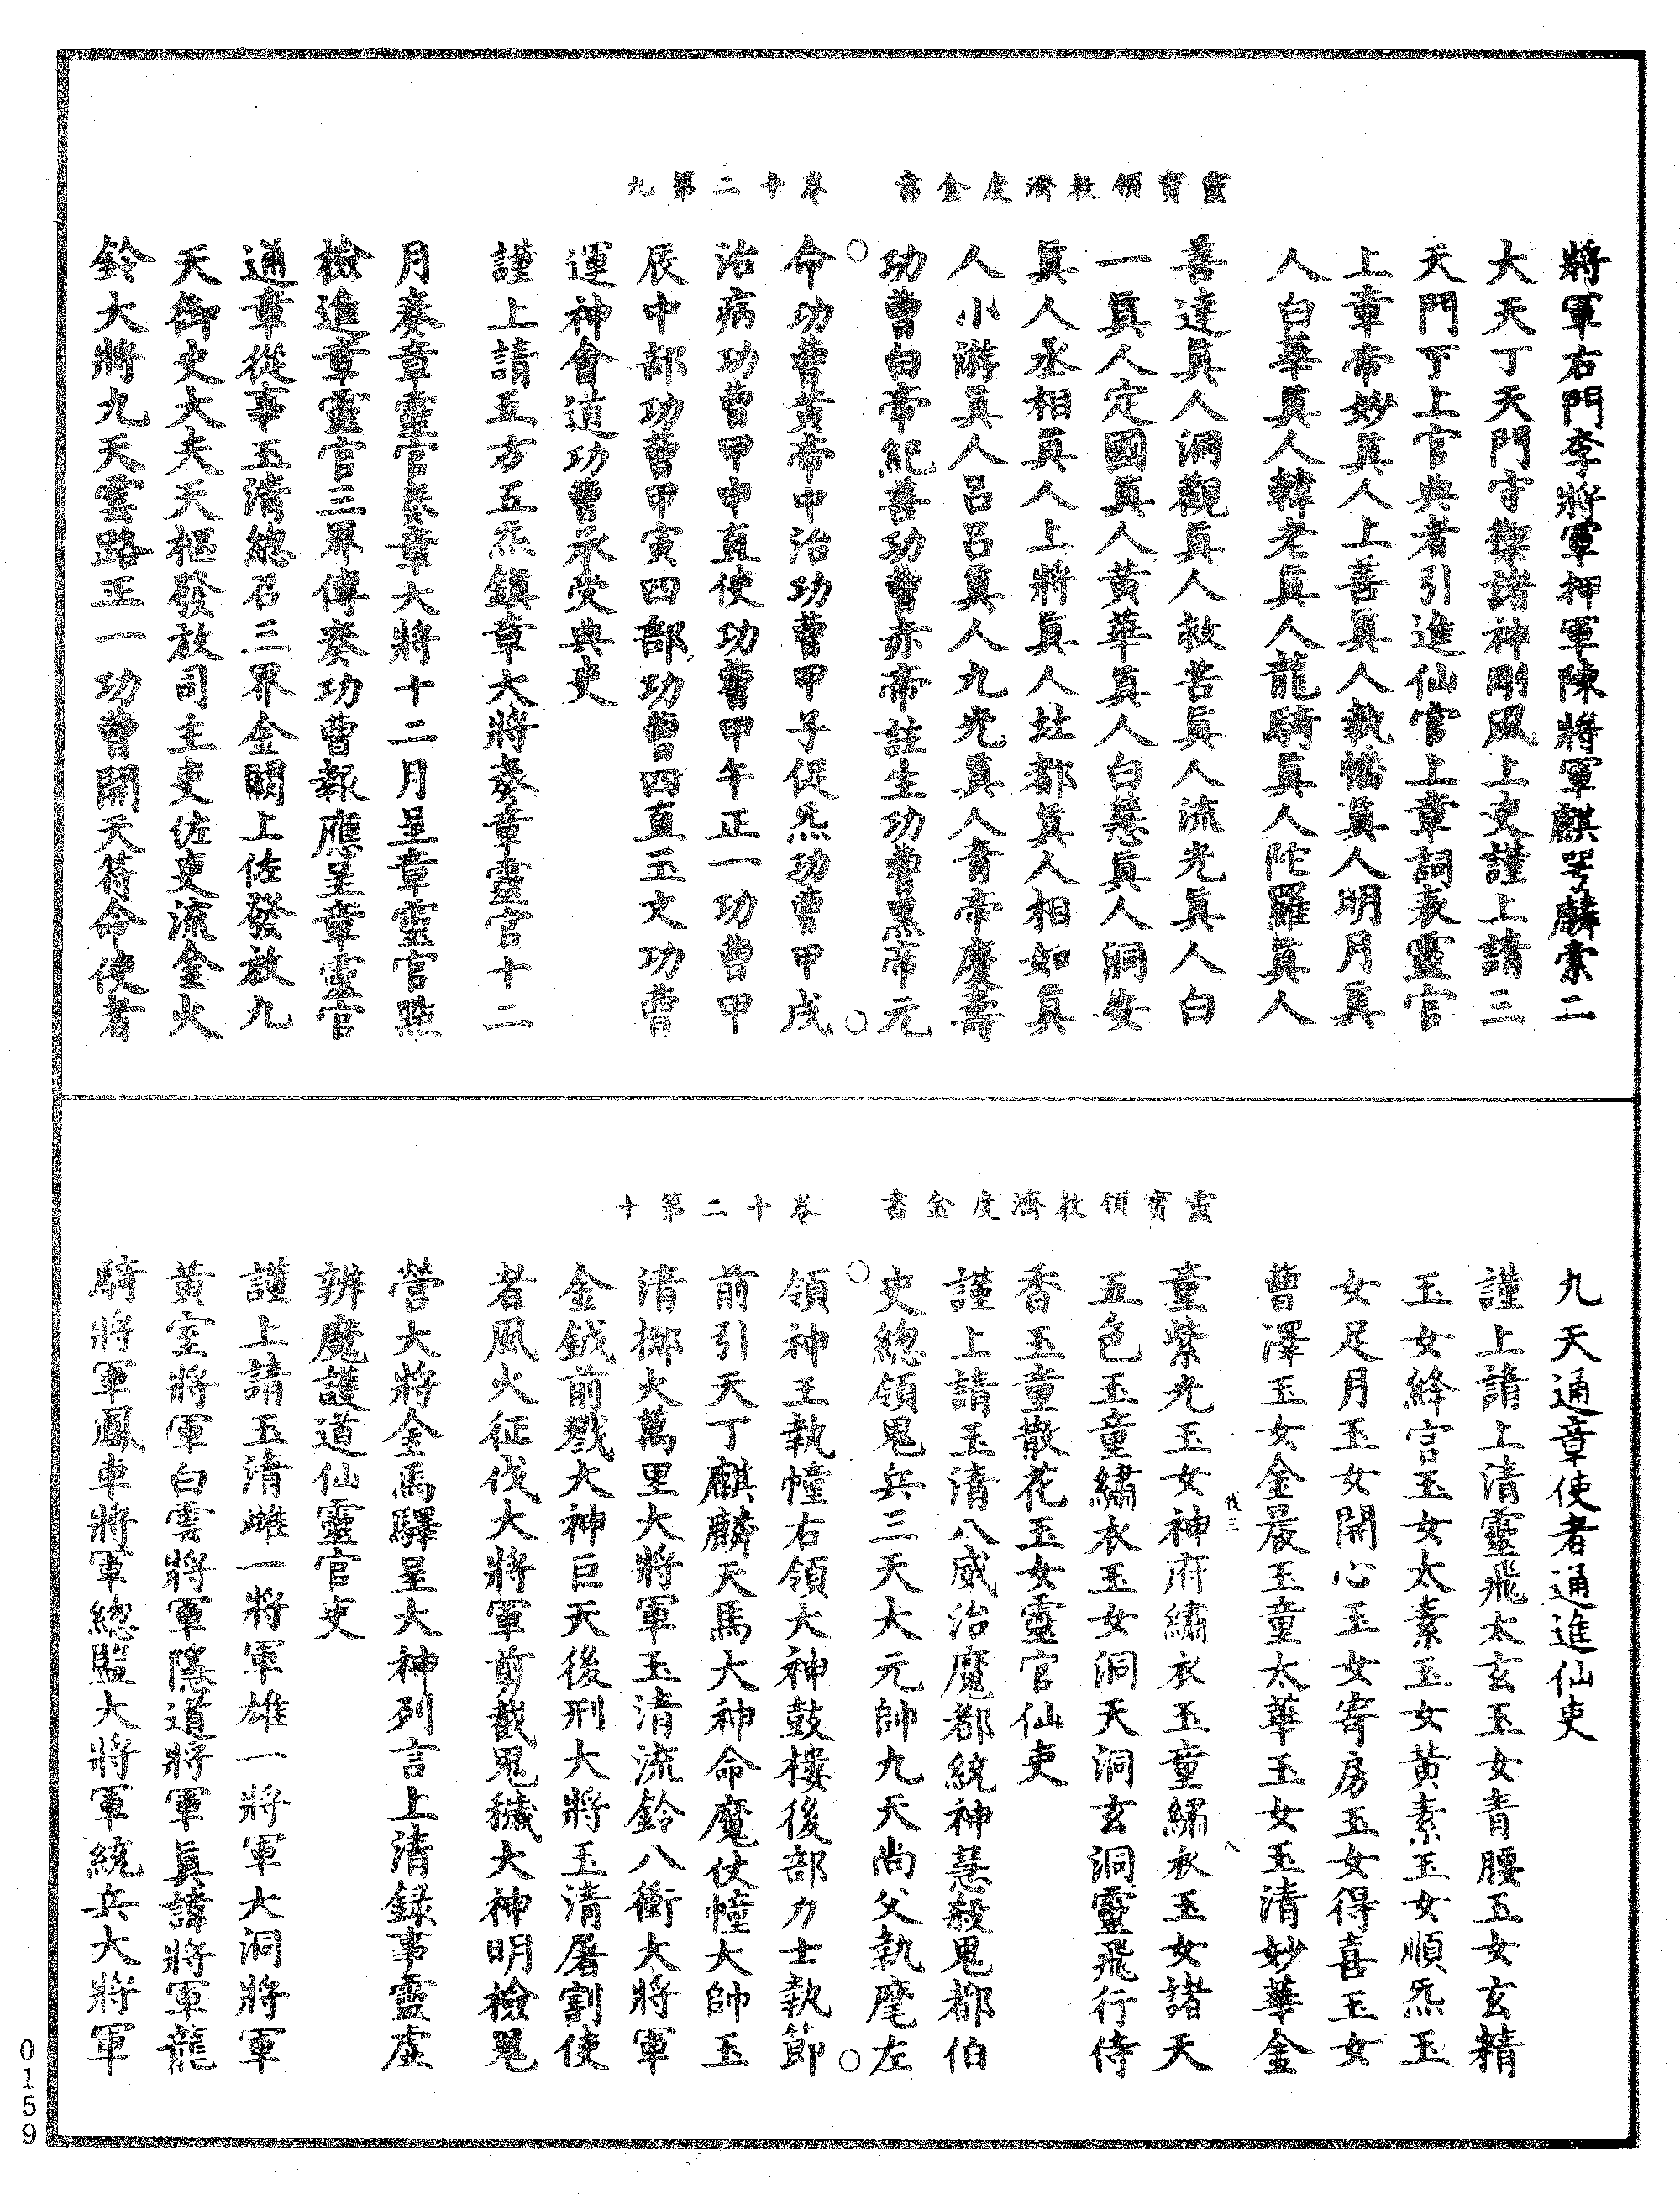 靈寶領教濟度金書　卷十二第九
將軍右門李將軍押軍陳將軍麒𦋺麟索二
大天丁天門守禦諸神剛風上吏謹上請三
天門下上官典者引進仙官上章詞表靈官
上章帝妙真人上善真人執幡真人明月真
人白華真人韓老真人龍騎真人陀羅真人
善達真人洞觀真人救苦真人流光真人白
一真人定國真人黃華真人白慧真人洞安
真人丞相真人上將真人社都真人相如真
人小游真人呂呂真人九光真人青帝慶壽
功曹白帝紀善功曹赤帝註生功曹黑帝元
命功曹黃帝中治功曹甲子促炁功曹甲戌
治病功曹甲申直使功曹甲午正一功曹甲
辰中部功曹甲寅四部功曹四直玉文功曹
運神會道功曹承受典吏
謹上請五方五炁鎮章大將奏章靈官十二
月奏章靈官奏章大將十二月呈章靈官照
檢進章靈官三界傳奏功曹報應呈章靈官
通章從事玉清總召三界金闕上佐發放九
天御史大夫天樞發放司主吏佐吏流金火
鈴大將九天雲路正一功曹開天符命使者
靈寶領教濟度金書　卷十二第十
九天通章使者通進仙吏
謹上請上清靈飛太玄玉女青腰玉女玄精
玉女絳宮玉女太素玉女黃素玉女順炁玉
女足月玉女開心玉女寄房玉女得喜玉女
曹澤玉女金晨玉童太華玉女玉清妙華金
伐三　八
童紫光玉女神府繡衣玉童繡衣玉女諸天
五色玉童繡衣玉女洞天洞玄洞靈飛行侍
香玉童散花玉女靈官仙吏
謹上請玉清八威治魔都統神慧殺鬼都伯
史總領鬼兵三天大元帥九天尚父執麾左
領神王執幢右領大神鼓樓後部力士執節
前引天丁麒麟天馬大神命魔仗幢大帥玉
清擲火萬里大將軍玉清流鈴八衝大將軍
金鉞前戮大神巨天後刑大將玉清屠割使
者風火征伐大將軍剪截鬼穢大神明檢鬼
營大將金馬驛呈大神列言上清錄事靈虛
辨魔護道仙靈官吏
謹上請玉清雌一將軍雄一將軍大洞將軍
黃室將軍白雲將軍隱道將軍真諱將軍龍
騎將軍鳳車將軍總監大將軍統兵大將軍
0159